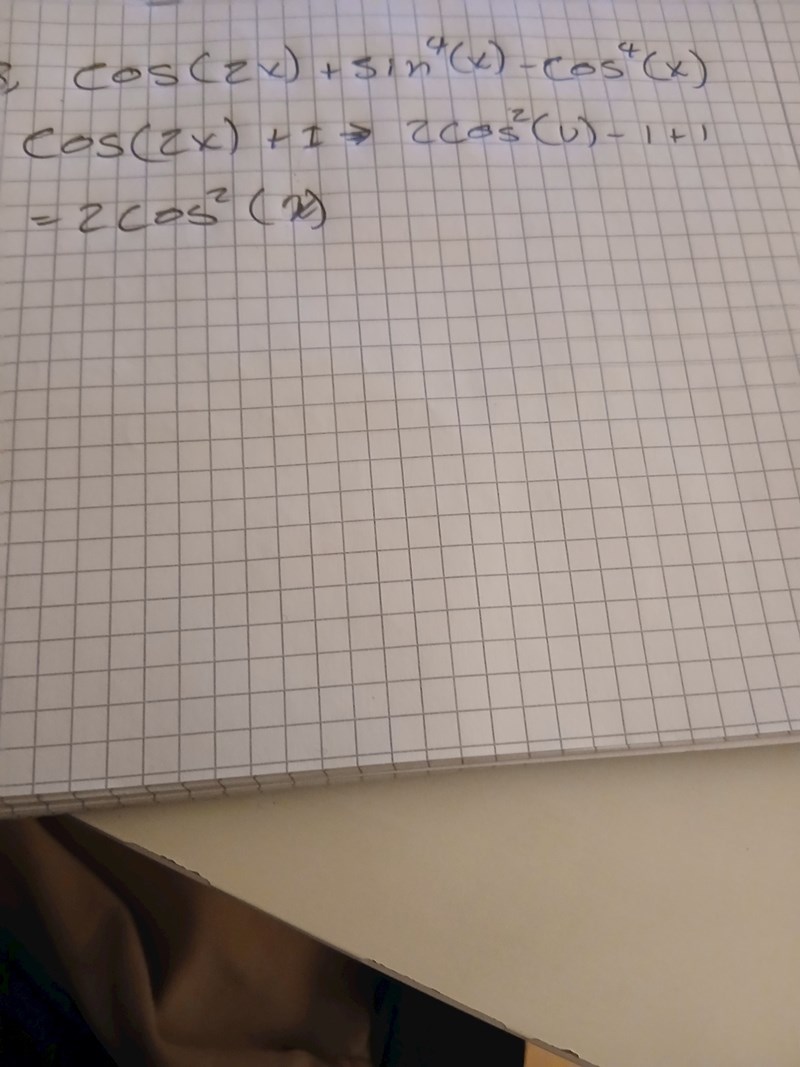 cos(2x) + sin⁴(x) - cos⁴(x)
cos(2x) + 1 → 2cos²(u) - 1 + 1
= 2cos²(x)